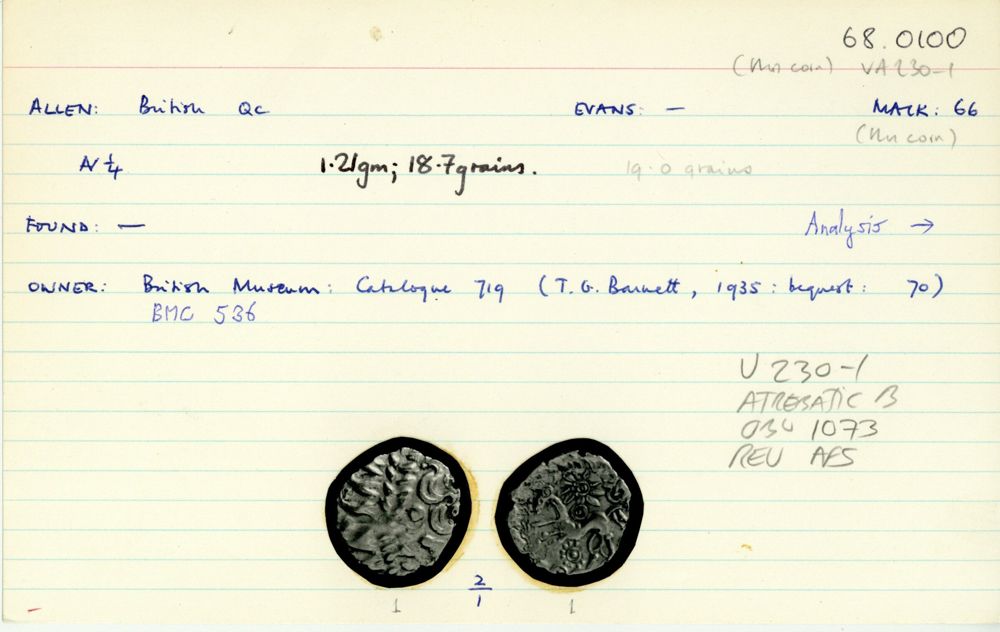 68.0100
(this coin) VA 230-1
ALLEN: British QC EVANS: — MACK: 66
(this coin)
AV ¼ 1·21gm; 18·7grains. 19·0 grains
FOUND: — Analysis →
OWNER: British Museum: Catalogue 719 (T.G. Barnett, 1935: bequest: 70)
BMC 536
V 230-1
ATREBATIC B
OBV 1073
REV AFS
2
1
1 1